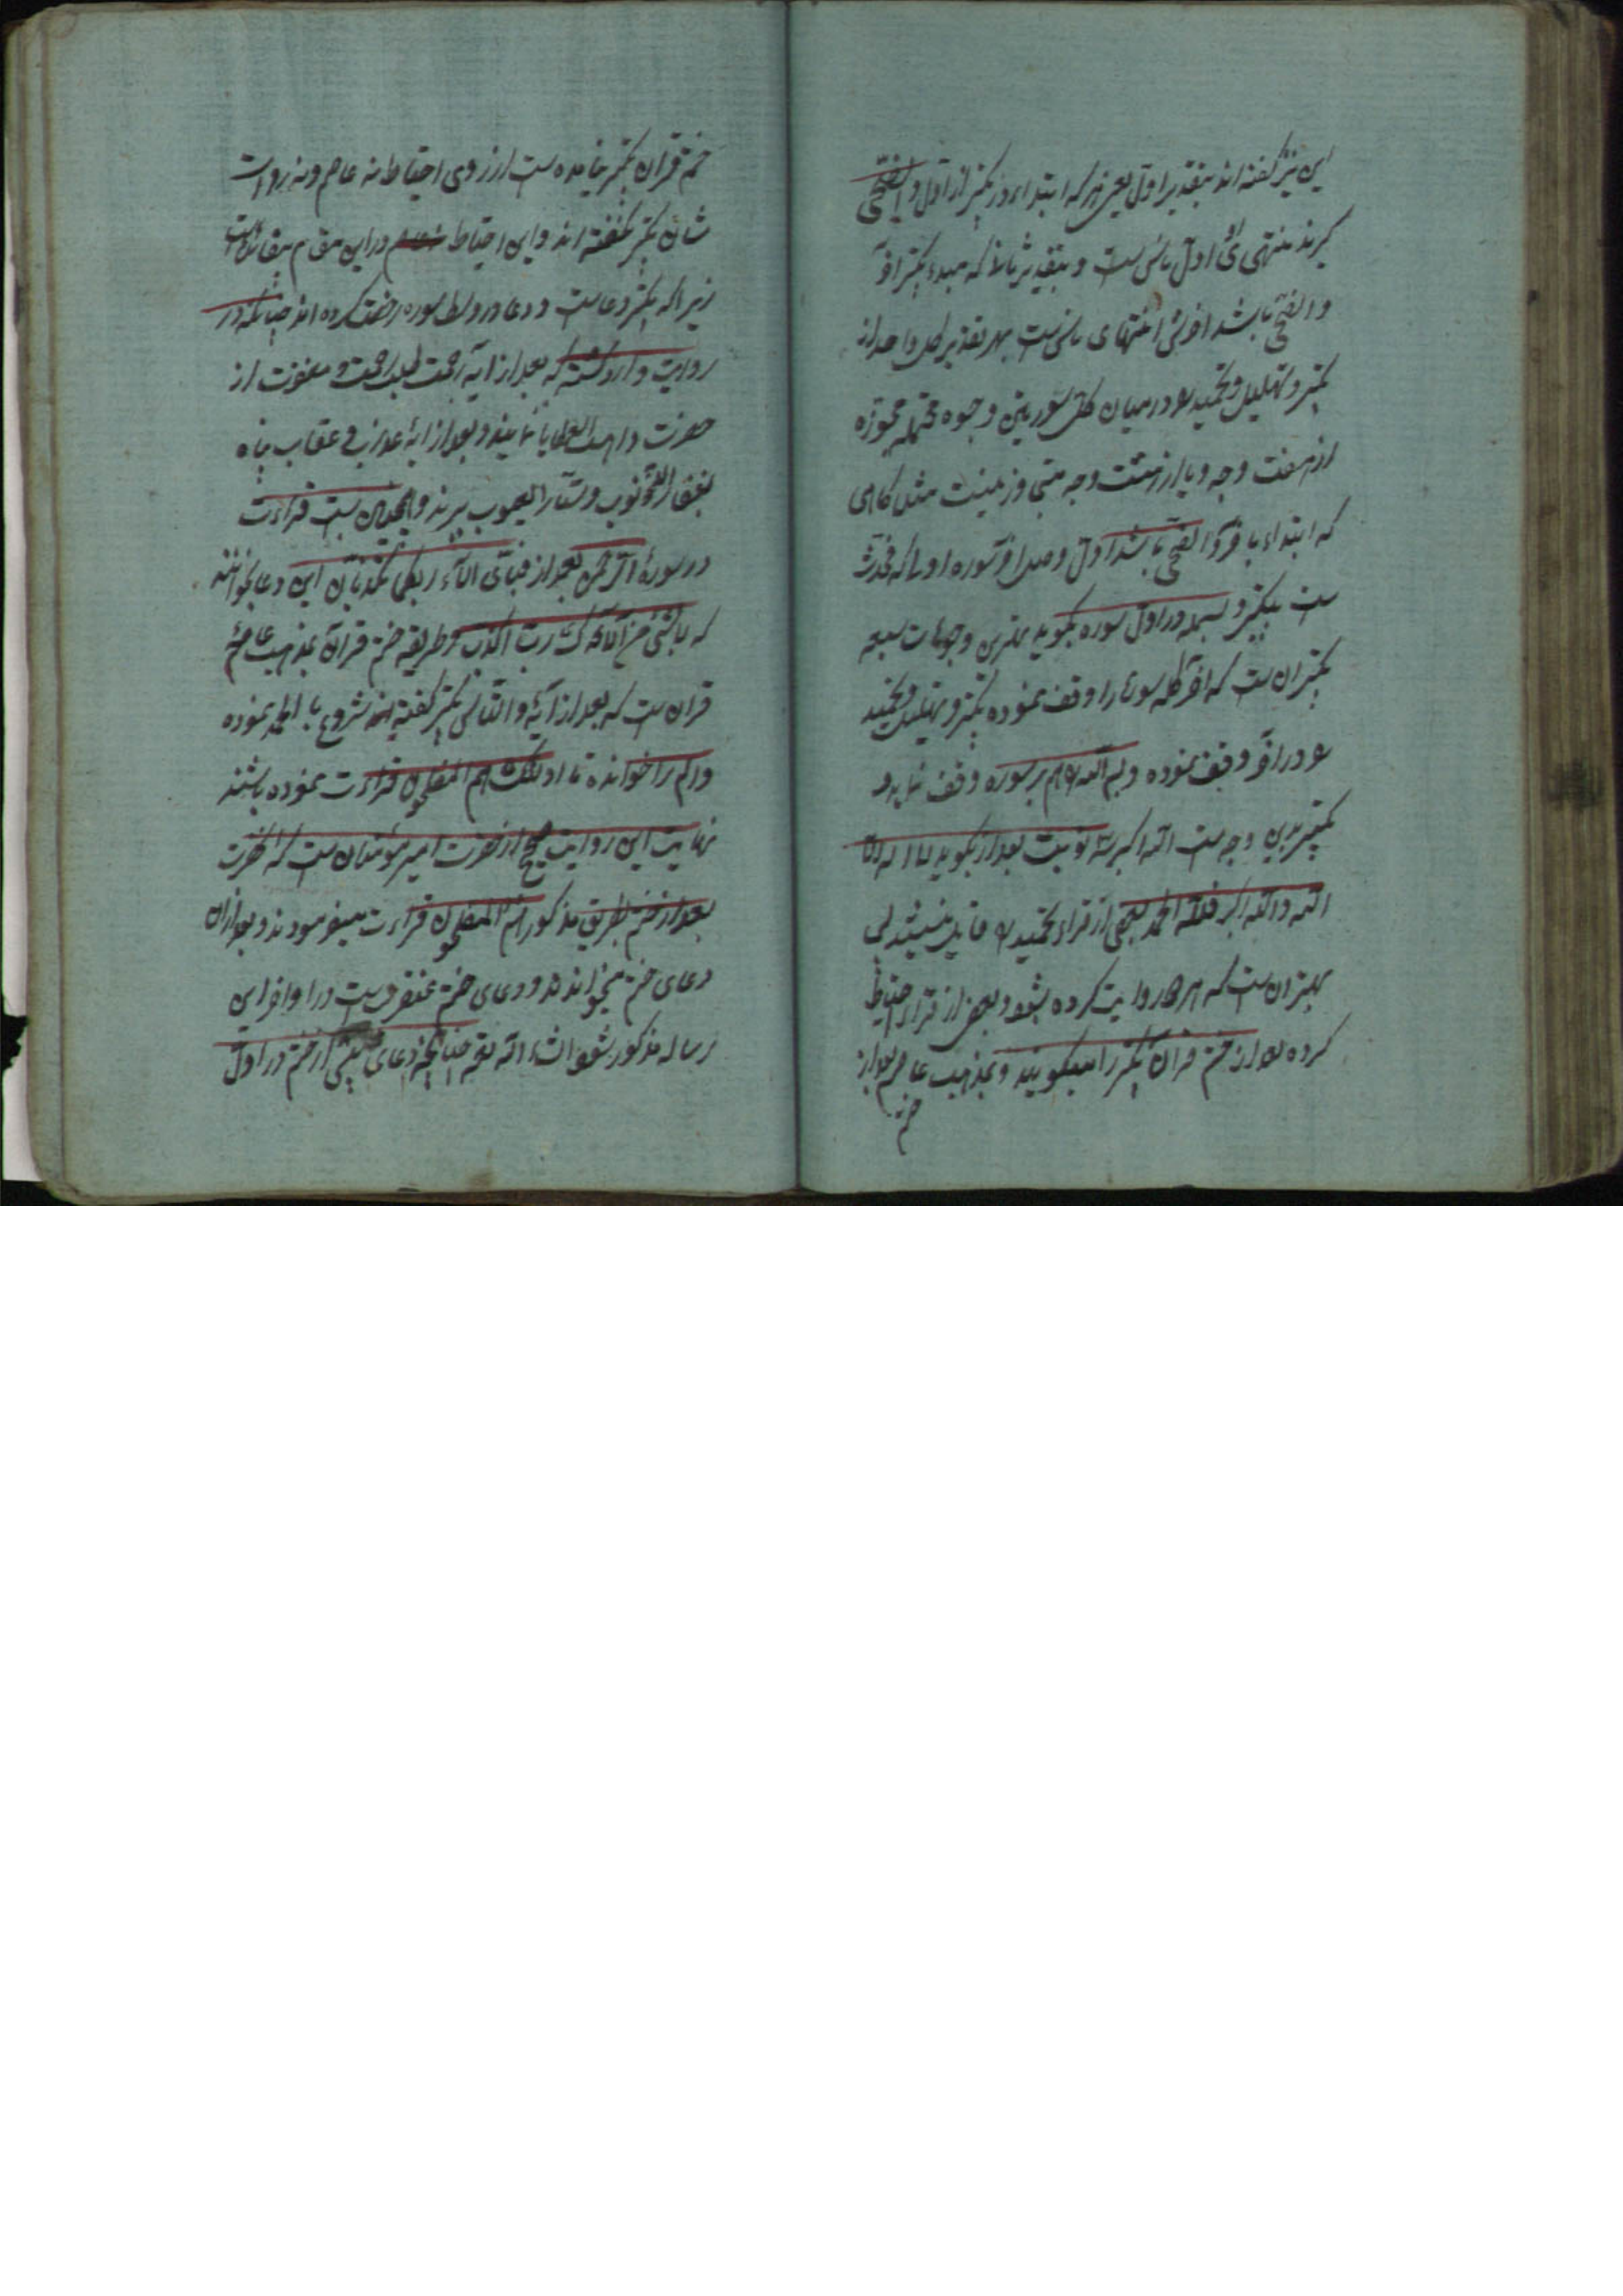 این نیز گفته اند بتقدیر اول یعنی هر که ابتداء در تکبیر از اول والضحی
گیرند منتهی او اول ناس است و بتقدیر ثانی که مبدء تکبیر آخر
والضحی باشد آخرش انتهای ناس است بهر تقدیر کل واحد از
تکبیر و تهلیل و تحمید و در میان کل سورتین وجوه محتمله مجوزه
از هفت وجه و یا از هشت وجه مثل گاهی
که ابتداء بآخر والضحی باشد اول وصل آخر سوره اولی که فحدث
است بتکبیر و بسمله در اول سوره بگوید بهترین وجوهات سبعه
تکبیر آن است که آخر کله سوره را وقف نموده تکبیر و تهلیل و تحمید
و در آخر وقف نموده و بسم الله هم بر سوره وقف نماید و
تکبیر بدین وجه است الله اکبر سه نوبت بعد از بگوید لا اله الا
الله والله اکبر فلله الحمد بعضی از قراء تحمید قایل نیستند لی
بهتر آن است که هر چهار روایت کرده بشود و بعضی از قراء احتیاط
کرده بعد از ختم قرآن تکبیر را میگویند و بمذهب عاصم بعد از
ختم
ختم قرآن تکبیر است از روی احتیاط نه عاصم و نه روات
شان تکبیر نگفته اند و این احتیاط در این مقام بیقائده است
زیرا که تکبیر دعا است و دعا در وسط سوره رخصت کرده اند چنانکه در
روایت وارد گشته که بعد از آیه رحمت طلب رحمت و مغفرت از
حضرت واهب العطایا نمایند و بعد از آیه عذاب و عقاب پناه
بغفار الذنوب و ستار العیوب ببرند و همچنین است قراءت
در سوره الرحمن بعد از فبای آلاء ربکما تکذبان این دعا بخوانند
که لا بشیء من آلائک رب اکذب و طریقه ختم قرآن بمذهب عاصم
قرآن است که بعد از آیه والناس تکبیر گفته شروع با الحمد نموده
و الم را خوانده تا اولئک هم المفلحون قراءت نموده باشند
نهایت این روایت صحیح از حضرت امیر مؤمنان است که آنحضرت
بعد از ختم بطریق مذکور هم المفلحون قراءت میفرمودند و بعد از آن
دعای ختم میخواندند و دعای ختم عنقریب است در اواخر این
رساله مذکور بشود انشاء الله تع چنانکه دعای پیش از ختم در اول